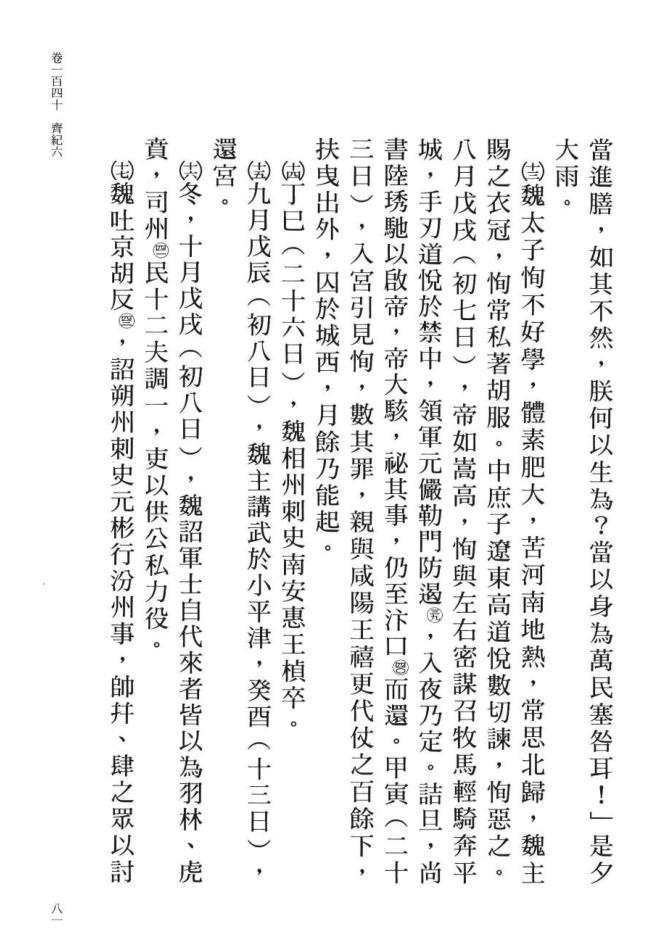 當進膳，如其不然，朕何以生為？當以身為萬民塞咎耳！」是夕
大雨。
㈩魏太子恂不好學，體素肥大，苦河南地熱，常思北歸，魏主
賜之衣冠，恂常私著胡服。中庶子遼東高道悅數切諫，恂惡之。
八月戊戌（初七日），帝如嵩高，恂與左右密謀召牧馬輕騎奔平
城，手刃道悅於禁中，領軍元儼勒門防遏㊴，入夜乃定。詰旦，尚
書陸琇馳以啟帝，帝大駭，祕其事，仍至汴口㊵而還。甲寅（二十
三日），入宮引見恂，數其罪，親與咸陽王禧更代仗之百餘下，
扶曳出外，囚於城西，月餘乃能起。
丁巳（二十六日），魏相州刺史南安惠王楨卒。
九月戊辰（初八日），魏主講武於小平津，癸酉（十三日），
還宮。
冬，十月戊戌（初八日），魏詔軍士自代來者皆以為羽林、虎
賁，司州民十二夫調一，吏以供公私力役。
魏吐京胡反，詔朔州刺史元彬行汾州事，帥并、肆之眾以討
卷一百四十　齊紀六
八一